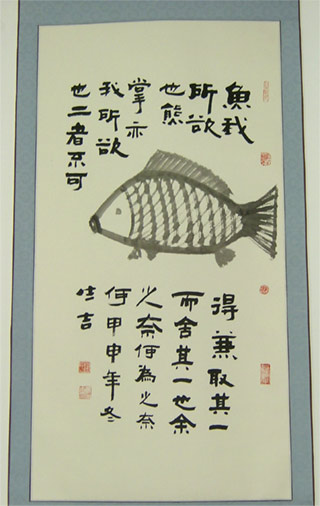 魚我
所欲
也熊
掌亦
我所欲
也二者不可
得兼取其一
而舍其一也余
之奈何為之奈
何甲申年冬
吉